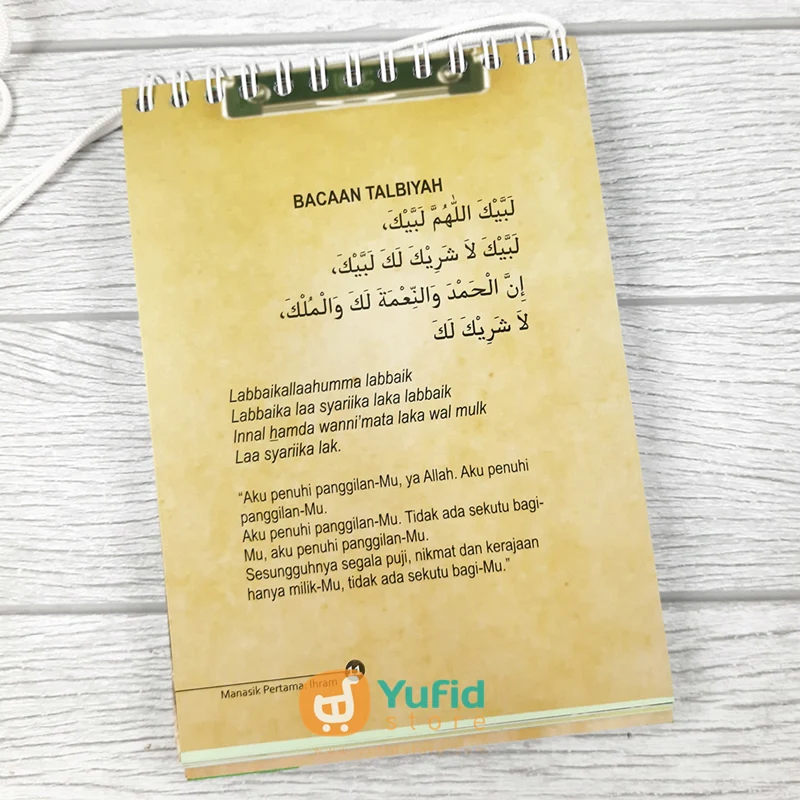 BACAAN TALBIYAH
لَبَّيْكَ اللّٰهُمَّ لَبَّيْكَ،
لَبَّيْكَ لاَ شَرِيْكَ لَكَ لَبَّيْكَ،
إِنَّ الْحَمْدَ وَالنِّعْمَةَ لَكَ وَالْمُلْكَ،
لاَ شَرِيْكَ لَكَ
Labbaikallaahumma labbaik
Labbaika laa syariika laka labbaik
Innal hamda wanni'mata laka wal mulk
Laa syariika lak.
"Aku penuhi panggilan-Mu, ya Allah. Aku penuhi
panggilan-Mu.
Aku penuhi panggilan-Mu. Tidak ada sekutu bagi-
Mu, aku penuhi panggilan-Mu.
Sesungguhnya segala puji, nikmat dan kerajaan
hanya milik-Mu, tidak ada sekutu bagi-Mu."
Manasik Pertama: Ihram
Yufid
store